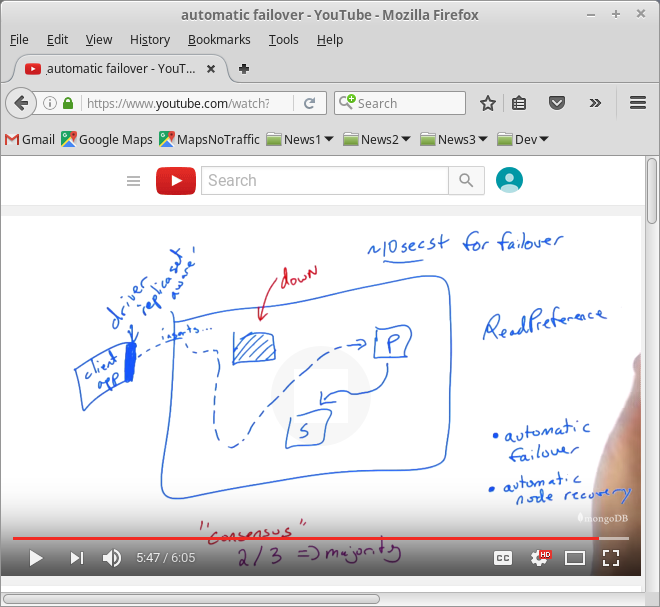 automatic failover - YouTube - Mozilla Firefox
File Edit View History Bookmarks Tools Help
automatic failover - YouT...
https://www.youtube.com/watch?
Search
Gmail Google Maps MapsNoTraffic News1 News2 News3 Dev
Search
~10 secs+ for failover
driver
replica set
aware
down
inserts...
client
app
P
ReadPreference
S
• automatic
failover
• automatic
node recovery
mongoDB
"Consensus"
2/3 => majority
5:47 / 6:05
CC
HD